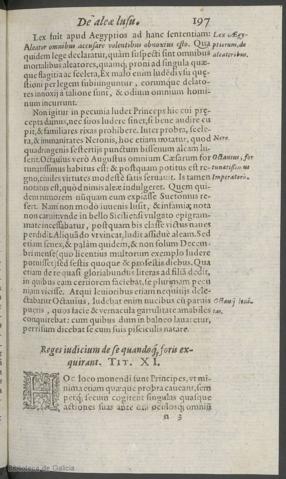 De alea lusu. 197
Lex fuit apud Aegyptios ad hanc sententiam:
Lex Ægy-
Aleator omnibus accusare volentibus obnoxius esto. Qua
ptiorum, de
quidem lege declaratur, quàm suspecti sint omnibus
aleatoribus.
mortalibus aleatores, quamq; proni ad singula quæ-
que flagitia ac scelera, Ex malo enim ludẽdi vsu quę-
stioni per legem subijnguntur, eorumque delato-
res innoxij à talione sunt, & odium omnium homi-
num incurrunt.
Non igitur in pecunia ludet Princeps hic cui præ-
cepta damus, nec suos ludere sinet, si bene audire cu
pit, & familiares rixas prohibere. Inter probra, scele-
ra, & immanitates Neronis, hoc etiam notatur, quod
Nero.
quadringenis sestertijs punctum bissenum aleam lu-
serit. Octauius verò Augustus omnium Cæsarum for
Octauius, for
tunatissimus habitus est: & postquam potitus est re-
tunatissim us
gno, ciuiles virtutes modestè satis seruauit. Is tamen
Imperator.
notatus est, quòd nimis aleæ indulgeret. Quem qui-
dem rumorem nūquam eum expiasse Suetonius re-
fert. Nam non modo iuuenis lusit, & infamiæ nota
non caruit, vnde in bello Siciliensi vulgato epigram-
mate incessabatur, postquam bis classe victus naues
perdidit. Aliquādo vt vincat, ludit assiduè aleam. Sed
etiam senex, & palàm quidem, & non solum Decem-
bri mense (quo licentius multorum exemplo ludere
potuisset) sed festis quoque & profestis diebus. Qua
etiam de re quasi gloriabundus literas ad filiā dedit,
in quibus eam certiorem faciebat, se plurimam pecu
niam vicisse. Atqui leuioribus etiam nequitijs dele-
ctabatur Octauius, ludebat enim nucibus cū paruis
Octauij leui-
pueris, quos facie & vernacula garrulitate amabiles
tas.
conquirebat: cum quibus dum in balneo lauaretur,
per risum dicebat se cum suis pisciculis natare.
Reges iudicium de se quandoq́, foris ex-
quirant. TIT. XI.
HOc loco monendi sunt Principes, vt mi-
nima etiam quæque probra caueant, sem
petq́; secum cogitent singulas quasque
actiones suas ante ora oculosq́; omniũ
n 3
Biblioteca de Galicia